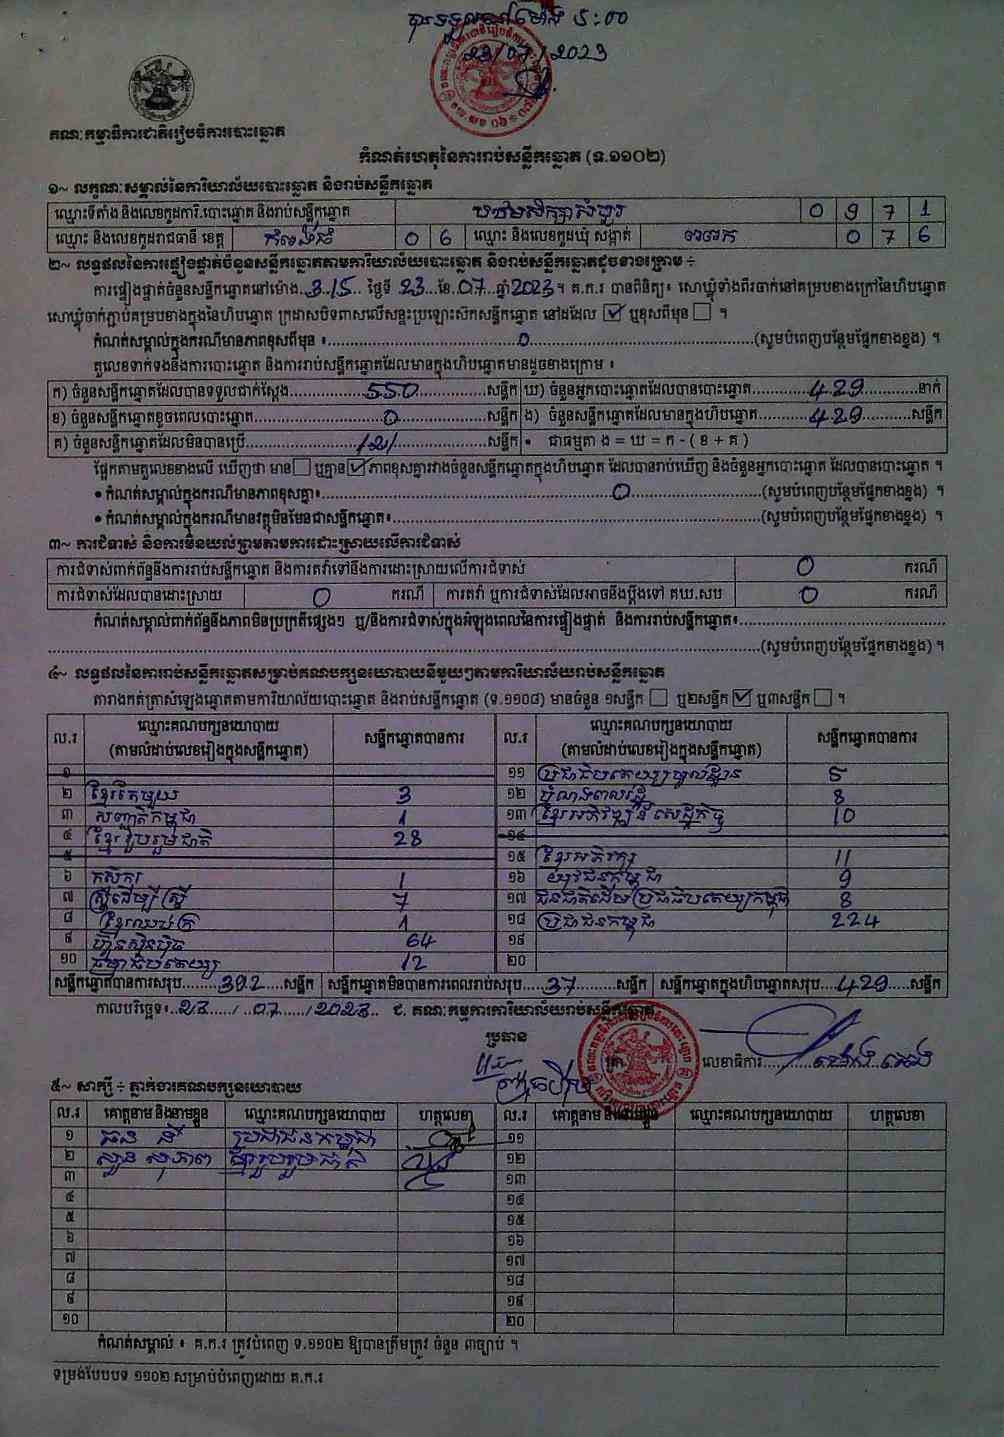 5:00
23/07/2023
គណៈកម្មាធិការជាតិរៀបចំការបោះឆ្នោត
កំណត់ហេតុនៃការរាប់សន្លឹកឆ្នោត (ទ.១១០២)
១~ លក្ខណៈសម្គាល់នៃការិយាល័យបោះឆ្នោត និងរាប់សន្លឹកឆ្នោត
ឈ្មោះទីតាំង និងលេខកូដការិ.បោះឆ្នោត និងរាប់សន្លឹកឆ្នោត 0 9 7 1
ឈ្មោះ និងលេខកូដរាជធានី ខេត្ត កំពង់ធំ 0 6 ឈ្មោះ និងលេខកូដឃុំ សង្កាត់ 0 7 6
២~ លទ្ធផលនៃការផ្ទៀងផ្ទាត់ចំនួនសន្លឹកឆ្នោតតាមការិយាល័យបោះឆ្នោត និងរាប់សន្លឹកឆ្នោតដូចខាងក្រោម ÷
ការផ្ទៀងផ្ទាត់ចំនួនសន្លឹកឆ្នោតនៅម៉ោង 3:15 ថ្ងៃទី 23 ខែ 07 ឆ្នាំ 2023 ។ គ.ក.រ បានពិនិត្យ៖ សោឃ្លុំទាំងពីរចាក់នៅគម្របខាងក្រៅនៃហិបឆ្នោត
សោឃ្លុំចាក់ភ្ជាប់គម្របខាងក្នុងនៃហិបឆ្នោត ក្រដាសបិទពាសលើសន្ទះប្រឡោះសិកសន្លឹកឆ្នោត នៅដដែល ☑ ឬខុសពីមុន ☐ ។
កំណត់សម្គាល់ក្នុងករណីមានភាពខុសពីមុន ៖ 0 (សូមបំពេញបន្ថែមផ្នែកខាងខ្នង) ។
តួលេខទាក់ទងនឹងការបោះឆ្នោត និងការរាប់សន្លឹកឆ្នោតដែលមានក្នុងហិបឆ្នោតមានដូចខាងក្រោម ៖
ក) ចំនួនសន្លឹកឆ្នោតដែលបានទទួលជាក់ស្តែង 550 សន្លឹក ឃ) ចំនួនអ្នកបោះឆ្នោតដែលបានបោះឆ្នោត 429 នាក់
ខ) ចំនួនសន្លឹកឆ្នោតខូចពេលបោះឆ្នោត 0 សន្លឹក ង) ចំនួនសន្លឹកឆ្នោតដែលមានក្នុងហិបឆ្នោត 429 សន្លឹក
គ) ចំនួនសន្លឹកឆ្នោតដែលមិនបានប្រើ 121 សន្លឹក • ជាធម្មតា ង = ឃ = ក - ( ខ + គ )
ផ្អែកតាមតួលេខខាងលើ ឃើញថា មាន ☐ ឬគ្មាន ☑ ភាពខុសគ្នារវាងចំនួនសន្លឹកឆ្នោតក្នុងហិបឆ្នោត ដែលបានរាប់ឃើញ និងចំនួនអ្នកបោះឆ្នោត ដែលបានបោះឆ្នោត ។
• កំណត់សម្គាល់ក្នុងករណីមានភាពខុសគ្នា៖ 0 (សូមបំពេញបន្ថែមផ្នែកខាងខ្នង) ។
• កំណត់សម្គាល់ក្នុងករណីមានវត្ថុមិនមែនជាសន្លឹកឆ្នោត៖ (សូមបំពេញបន្ថែមផ្នែកខាងខ្នង) ។
៣~ ការជំទាស់ និងការមិនយល់ព្រមតាមការដោះស្រាយលើការជំទាស់
ការជំទាស់ពាក់ព័ន្ធនឹងការរាប់សន្លឹកឆ្នោត និងការតវ៉ាទៅនឹងការដោះស្រាយលើការជំទាស់ 0 ករណី
ការជំទាស់ដែលបានដោះស្រាយ 0 ករណី ការតវ៉ា ឬការជំទាស់ដែលអាចនឹងប្តឹងទៅ គឃ.សប 0 ករណី
កំណត់សម្គាល់ពាក់ព័ន្ធនឹងភាពមិនប្រក្រតីផ្សេងៗ ឬ/និងការជំទាស់ក្នុងអំឡុងពេលនៃការផ្ទៀងផ្ទាត់ និងការរាប់សន្លឹកឆ្នោត៖
(សូមបំពេញបន្ថែមផ្នែកខាងខ្នង) ។
៤~ លទ្ធផលនៃការរាប់សន្លឹកឆ្នោតសម្រាប់គណបក្សនយោបាយនីមួយៗតាមការិយាល័យរាប់សន្លឹកឆ្នោត
តារាងកត់ត្រាសំឡេងឆ្នោតតាមការិយាល័យបោះឆ្នោត និងរាប់សន្លឹកឆ្នោត (ទ.១១០៨) មានចំនួន ១សន្លឹក ☐ ឬ២សន្លឹក ☑ ឬ៣សន្លឹក ☐ ។
ល.រ ឈ្មោះគណបក្សនយោបាយ (តាមលំដាប់លេខរៀងក្នុងសន្លឹកឆ្នោត) សន្លឹកឆ្នោតបានការ ល.រ ឈ្មោះគណបក្សនយោបាយ (តាមលំដាប់លេខរៀងក្នុងសន្លឹកឆ្នោត) សន្លឹកឆ្នោតបានការ
១ ១១ ប្រជាធិបតេយ្យមូលដ្ឋាន 5
២ ខ្មែរតែមួយ 3 ១២ បំណងពលរដ្ឋ 8
៣ សញ្ជាតិកម្ពុជា 1 ១៣ ខ្មែរអភិវឌ្ឍន៍សេដ្ឋកិច្ច 10
៤ ខ្មែររួបរួមជាតិ 28 ១៤
៥ ១៥ ខ្មែរអភិរក្ស 11
៦ កសិករ 1 ១៦ យុវជនកម្ពុជា 9
៧ ស្ត្រីដើម្បីស្ត្រី 7 ១៧ ជនជាតិដើមប្រជាធិបតេយ្យកម្ពុជា 8
៨ ខ្មែរឈប់ក្រ 1 ១៨ ប្រជាជនកម្ពុជា 224
៩ ហ៊្វុនស៊ិនប៉ិច 64 ១៩
១០ ធម្មាធិបតេយ្យ 12 ២០
សន្លឹកឆ្នោតបានការសរុប 392 សន្លឹក សន្លឹកឆ្នោតមិនបានការពេលរាប់សរុប 37 សន្លឹក សន្លឹកឆ្នោតក្នុងហិបឆ្នោតសរុប 429 សន្លឹក
កាលបរិច្ឆេទ៖ 23 / 07 / 2023 ជ. គណៈកម្មការការិយាល័យរាប់សន្លឹកឆ្នោត
ប្រធាន
ត្រា លេខាធិការ
៥~ សាក្សី ÷ ភ្នាក់ងារគណបក្សនយោបាយ
ល.រ គោត្តនាម និងនាមខ្លួន ឈ្មោះគណបក្សនយោបាយ ហត្ថលេខា ល.រ គោត្តនាម និងនាមខ្លួន ឈ្មោះគណបក្សនយោបាយ ហត្ថលេខា
១ ប្រជាជនកម្ពុជា ១១
២ ខ្មែររួបរួមជាតិ ១២
៣ ១៣
៤ ១៤
៥ ១៥
៦ ១៦
៧ ១៧
៨ ១៨
៩ ១៩
១០ ២០
កំណត់សម្គាល់ ៖ គ.ក.រ ត្រូវបំពេញ ទ.១១០២ ឱ្យបានត្រឹមត្រូវ ចំនួន ៣ច្បាប់ ។
ទម្រង់បែបបទ ១១០២ សម្រាប់បំពេញដោយ គ.ក.រ